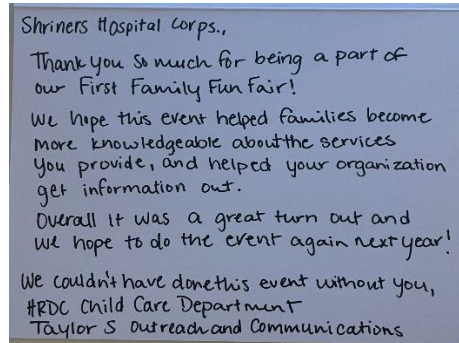 Shriners Hospital Corps.,
Thank you so much for being a part of
our First Family Fun Fair!
We hope this event helped families become
more knowledgeable about the services
you provide, and helped your organization
get information out.
Overall it was a great turn out and
we hope to do the event again next year!
We couldn't have done this event without you,
HRDC Child Care Department
Taylor S Outreach and Communications